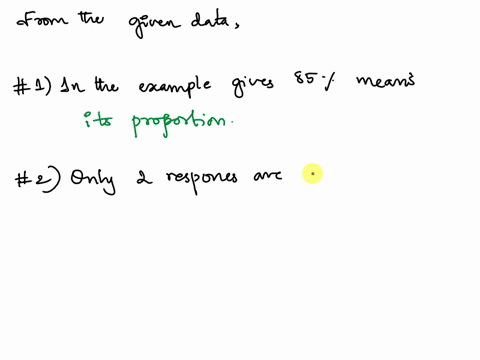 From the given data,
#1) In the example gives 85% means
its proportion.
#2) Only 2 respones are